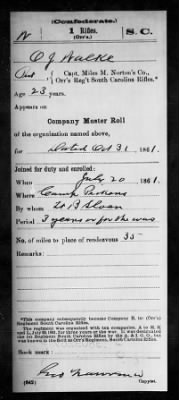 (Confederate.)
1 Rifles.
S. C.
(Orr's.)
O J Walke
Capt. Miles M. Norton's Co.,
Orr's Reg't South Carolina Rifles.*
Age 23 years.
Appears on
Company Muster Roll
of the organization named above,
for dated Oct 31, 1861.
Joined for duty and enrolled:
When July 20, 1861.
Where Camp Pickens
By whom
Period 3 years or for the war
No. of miles to place of rendezvous 35
Remarks:
*This company subsequently became Company E, 1st (Orr's)
Regiment South Carolina Rifles.
Book mark:
(642)
Copyist.